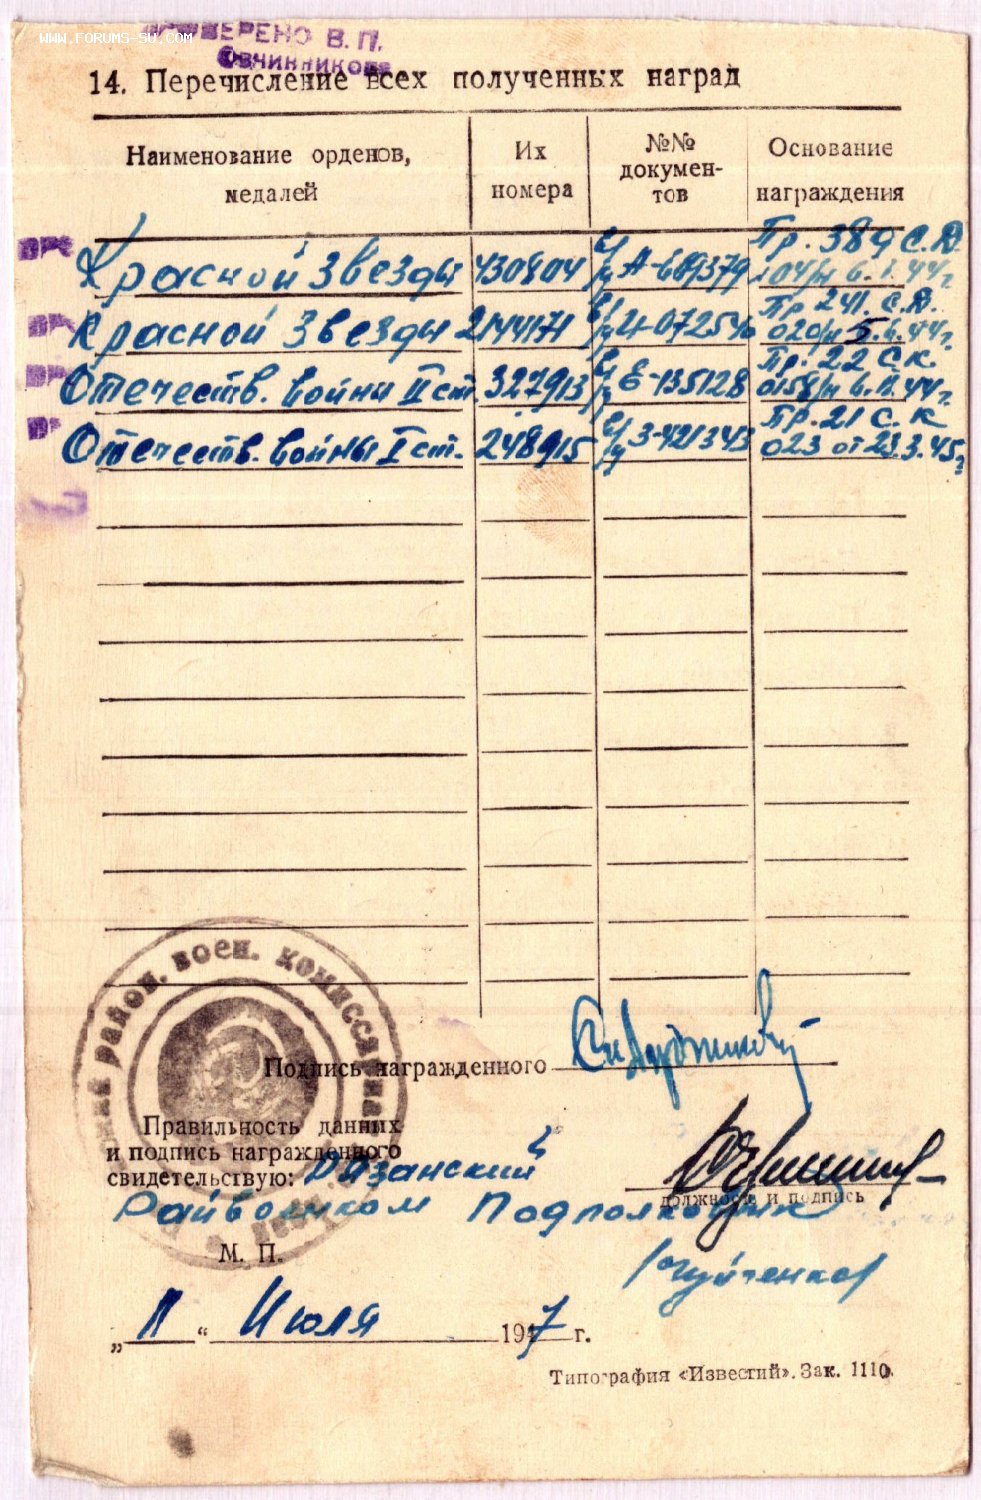 WWW.FORUMS-SU.COM
ПРОВЕРЕНО В. П.
Овчинникова
14. Перечисление всех полученных наград
Наименование орденов, медалей
Их номера
№№ документов
Основание награждения
Красной Звезды 430804 А-609379 Пр. 389 С.Д. 104/н 6.1.44 г.
Красной Звезды 2144171 072540 Пр. 241. С.Д. 020/н 5.6.44 г.
Отечеств. войны II ст. 327913 Е-135128 Пр. 22 С.К. 0158/н 6.11.44 г.
Отечеств. войны I ст. 248915 З-421343 Пр. 21 С. К 023 от 23.3.45 г.
район. воен. комиссариат
Подпись награжденного
Правильность данных
и подпись награжденного
свидетельствую: Рязанский
должность и подпись
Райвоенком Подполковник
М. П.
„ 11 “ Июля 1947 г.
Типография «Известий». Зак. 1110.